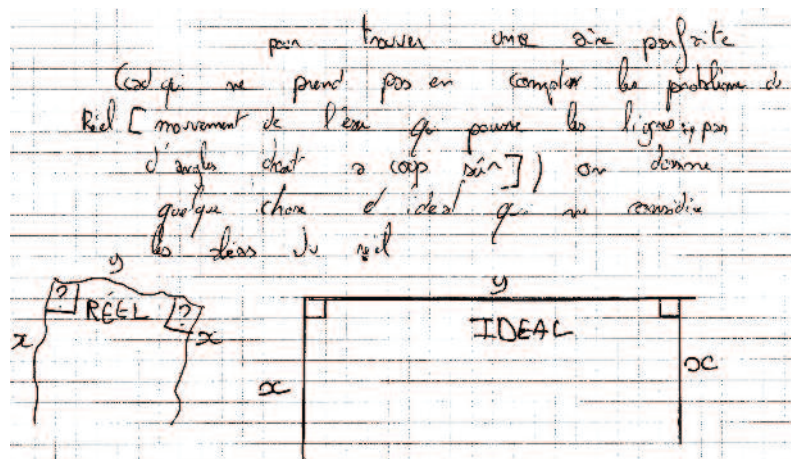 pour trouver une aire parfaite
(càd qui ne prend pas en compte les problème du
Réel [mouvement de l'eau qui pousse les lignes, pas
d'angles droit a coup sûr]) on dessine
quelque chose d'ideal qui ne considère
les aléas du réel
y
? RÉEL ?
x x
y
IDEAL
x x